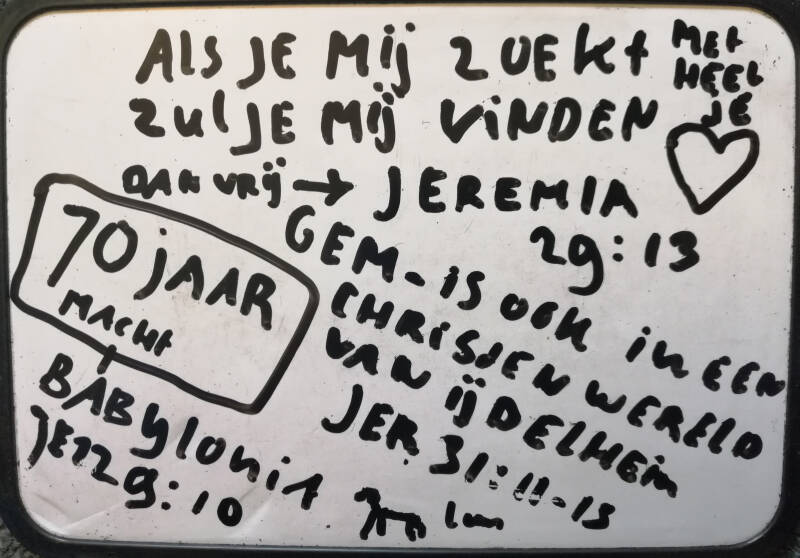 ALS JE MIJ ZOEKT MET HEEL JE
ZUL JE MIJ VINDEN
DAN VRIJ → JEREMIA
29:13
70 JAAR
MACHT
BABYLONIT
JER29:10
GEM- IS OOK IN EEN
CHRISJEN WERELD
VAN IJDELHEIM
JER. 31:11-13